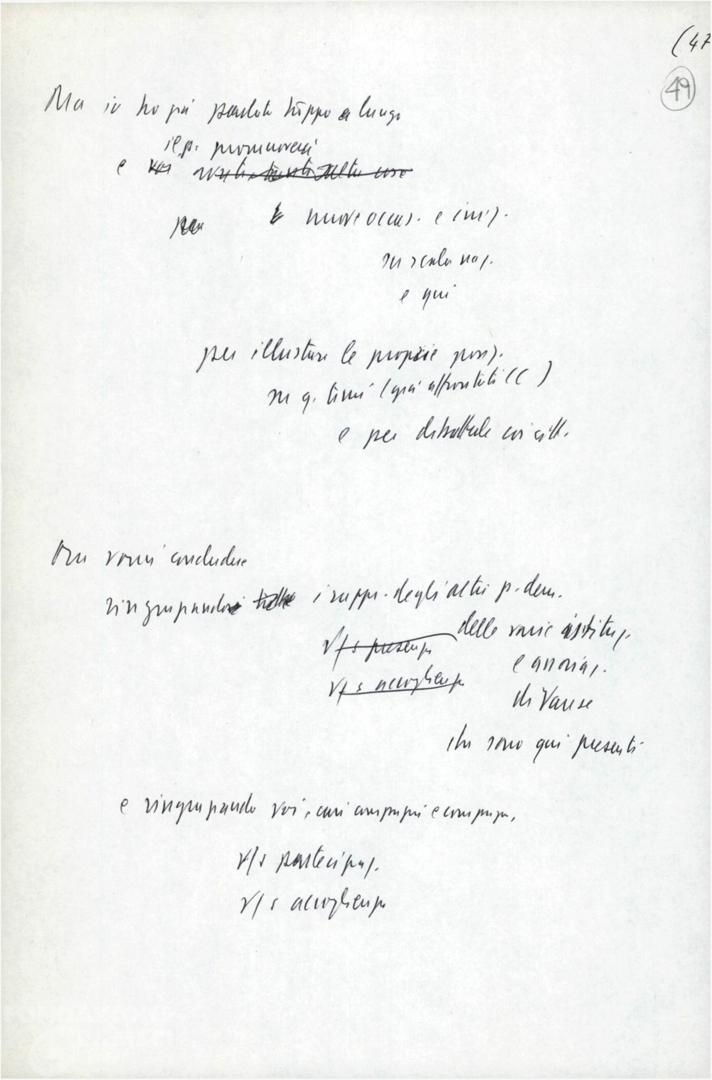 (47
49
Ma io ho già parlato troppo a lungo
il p. promuoverà
e
per nuove occas. e iniz.
su scala naz.
e qui
per illustrare le proprie posiz.
su q. temi (già affrontati
e per dibatterle coi citt.
Ora vorrei concludere
ringraziando i rappr. degli altri p. dem.
delle varie istituz.
v/s presenza
e associaz.
v/s accoglienza
di Varese
che sono qui presenti
e ringraziando voi, cari compagni e compagne,
v/s partecipaz.
v/s accoglienza